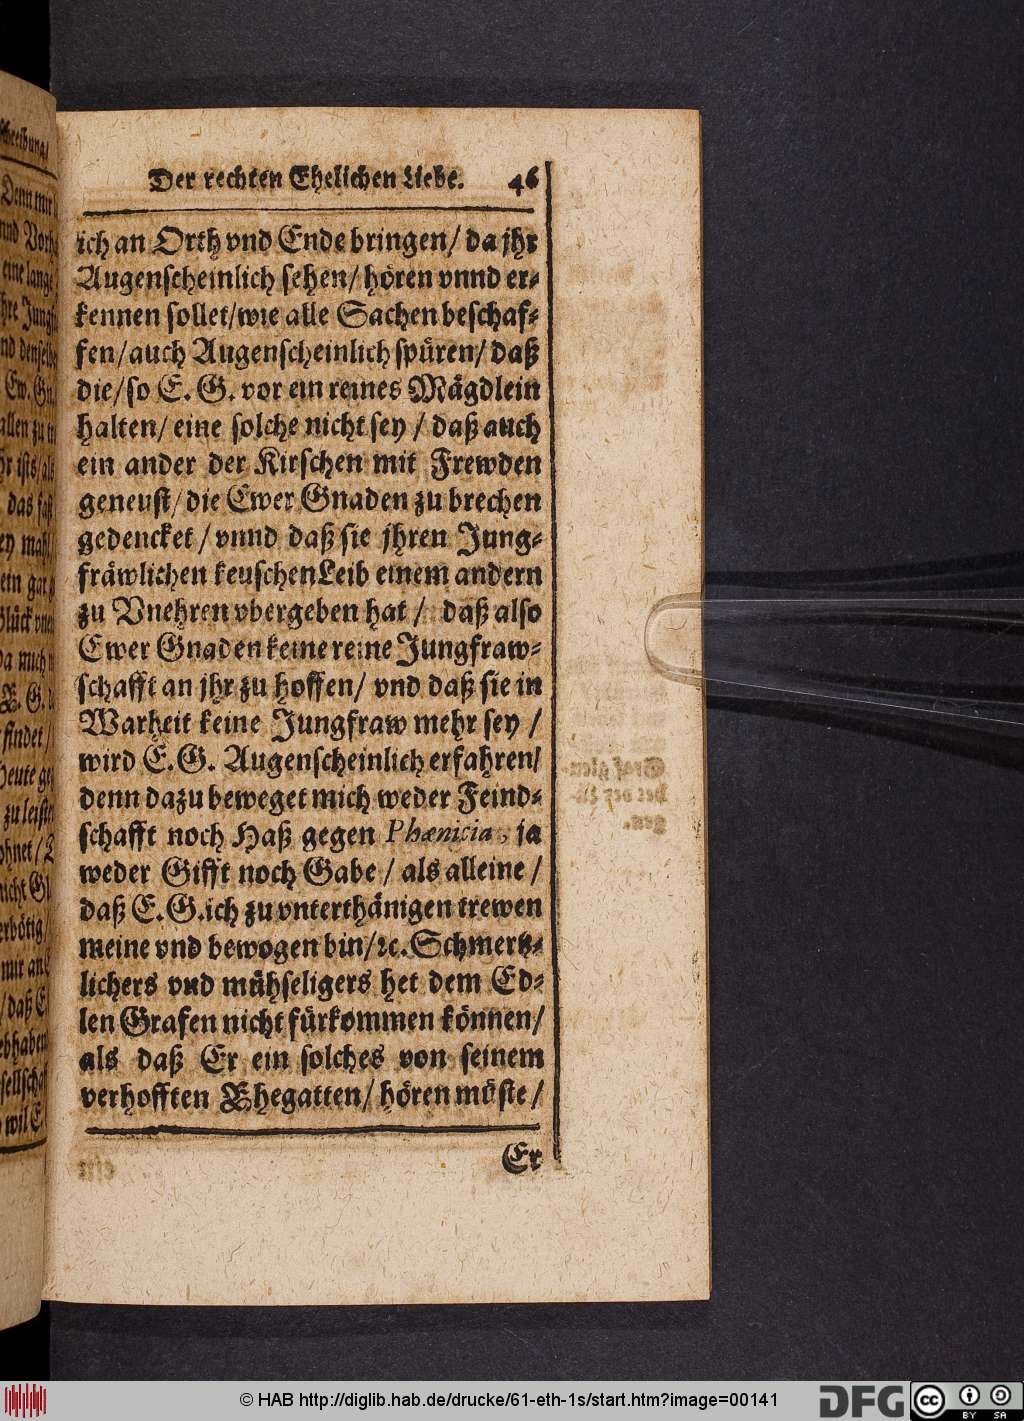 Der rechten Ehelichen Liebe. 46
ich an Orth vnd Ende bringen/ da jhr
Augenscheinlich sehen/ hören vnnd er-
kennen sollet/wie alle Sachen beschaf-
fen/auch Augenscheinlich spüren/ daß
die/so E. G. vor ein reines Mägdlein
halten/ eine solche nicht sey / daß auch
ein ander der Kirschen mit Frewden
geneust/ die Ewer Gnaden zu brechen
gedencket / vnnd daß sie jhren Jung-
fräwlichen keuschen Leib einem andern
zu Vnehren vbergeben hat / daß also
Ewer Gnaden keine reine Jungfraw-
schafft an jhr zu hoffen/ vnd daß sie in
Warheit keine Jungfraw mehr sey /
wird E.G. Augenscheinlich erfahren/
denn dazu beweget mich weder Feind-
schafft noch Haß gegen Phænicia, ja
weder Gifft noch Gabe / als alleine /
daß E.G.ich zu vnterthänigen trewen
meine vnd bewogen bin/ꝛc. Schmertz-
lichers vnd mühseligers het dem Ed-
len Grafen nicht fürkommen können/
als daß Er ein solches von seinem
verhofften Ehegatten/ hören müste /
Er
© HAB http://diglib.hab.de/drucke/61-eth-1s/start.htm?image=00141
DFG
cc
BY SA